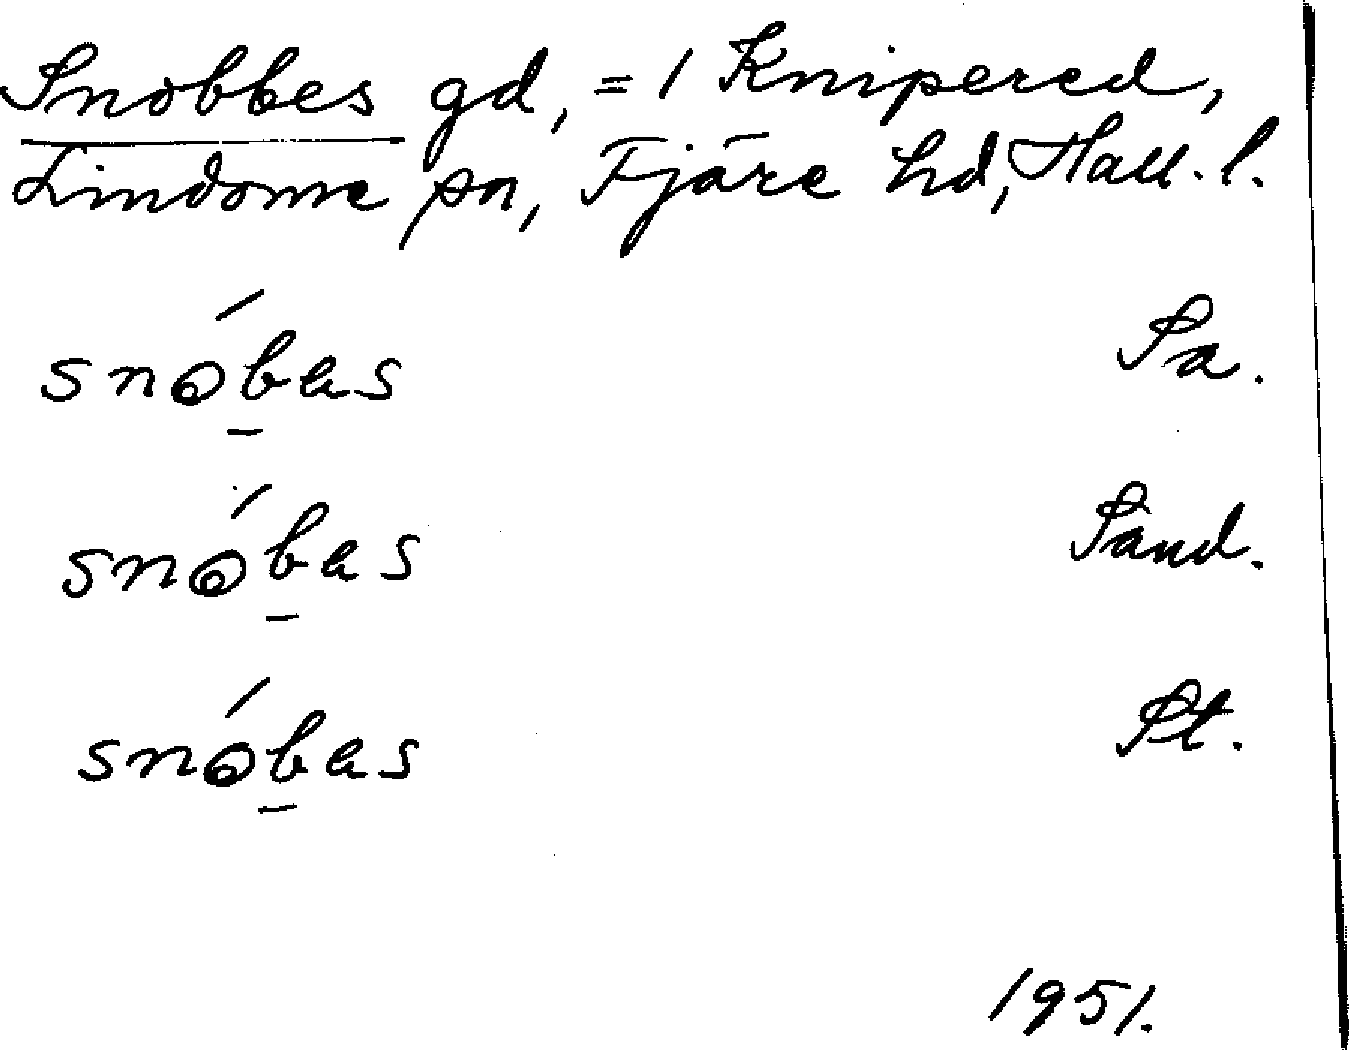 Snobbes gd, = 1 Knipered,
Lindome sn, Fjäre hd, Hall. l.
snóbas Sa.
snóbas Sand.
snóbas St.
1951.